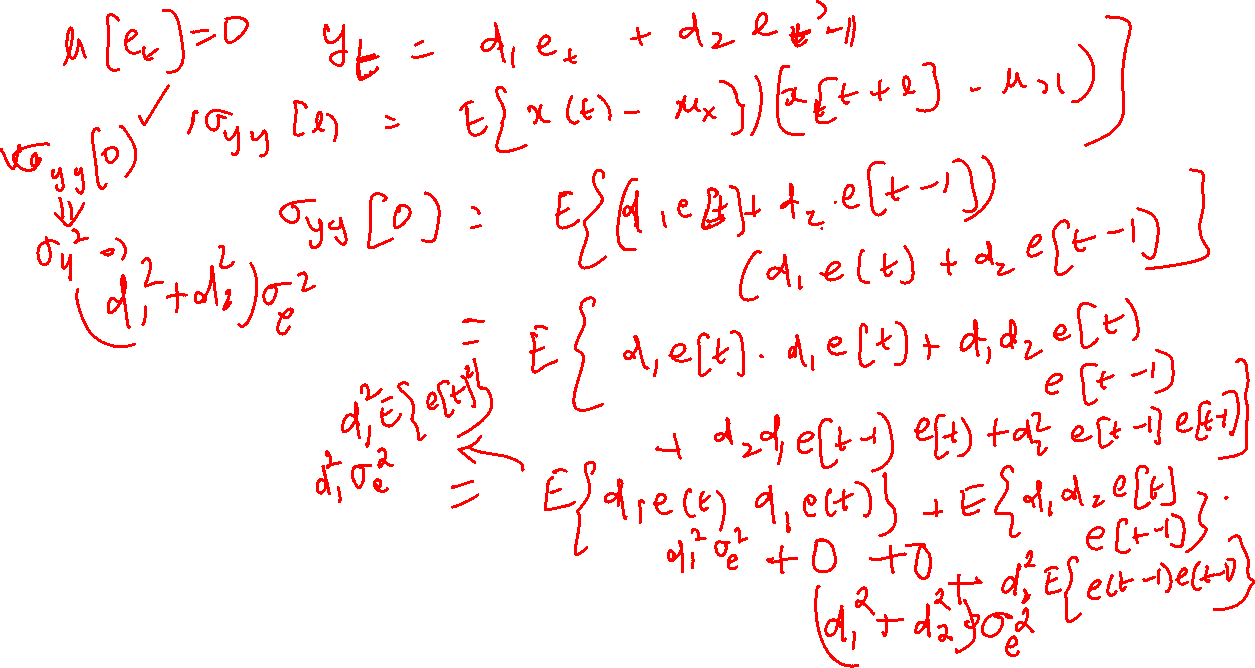 μ[e_t]=0   y_t = d_1 e_t + d_2 e_{t-1}
σ_yy[l] = E{x(t) - μ_x})(x[t+l] - μ_x)}
σ_yy[0]
⇓
σ_y^2 ⇒ (d_1^2 + d_2^2)σ_e^2
σ_yy[0] = E{(d_1 e[t] + d_2 . e[t-1])
(d_1 e(t) + d_2 e[t-1)}
= E{ d_1 e[t] . d_1 e[t) + d_1 d_2 e[t)
e[t-1)
+ d_2 d_1 e[t-1) e[t) + d_2^2 e[t-1] e[t-1)}
d_1^2 E{e[t]^2}
d_1^2 σ_e^2
= E{d_1 e(t) d_1 e(t)} + E{d_1 d_2 e[t] .
e[t-1)}
d_1^2 σ_e^2 + 0 + 0 + d_2^2 E{e(t-1) e(t-1)}
(d_1^2 + d_2^2)σ_e^2